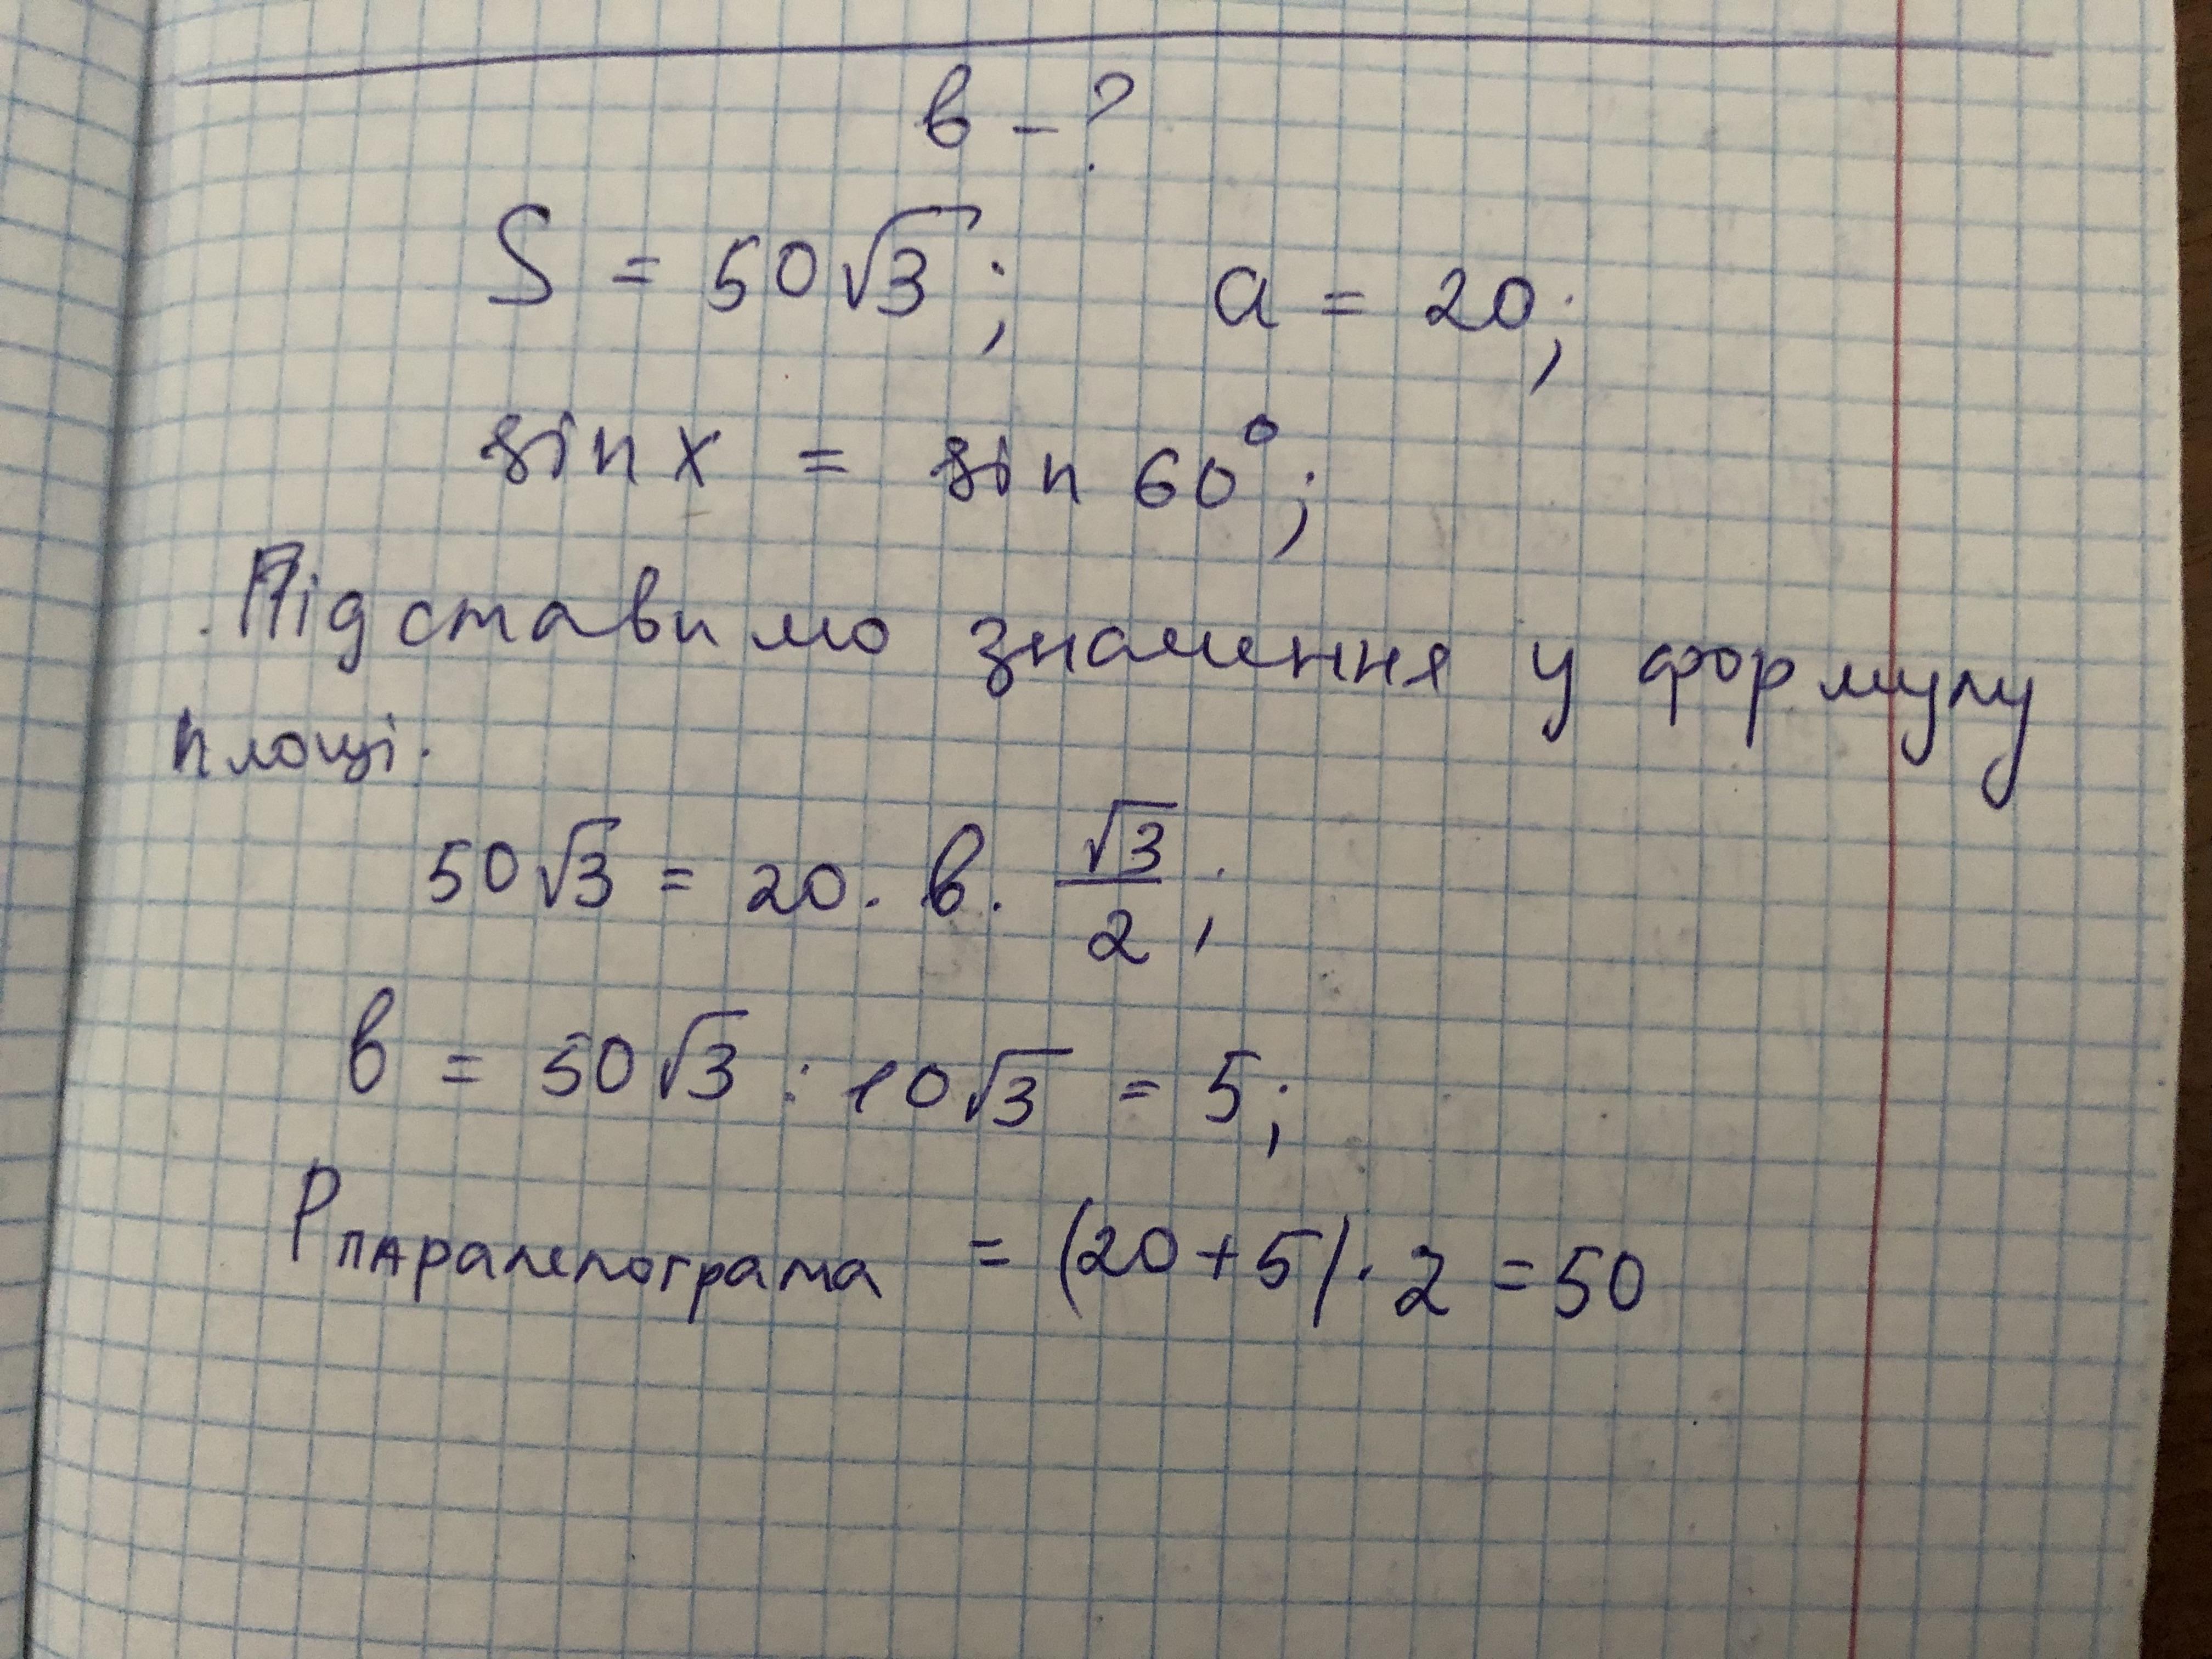 в - ?
S = 50√3; a = 20;
sin x = sin 60°;
Підставимо значення у формулу
площі.
50√3 = 20 · в · √3/2;
в = 50√3 : 10√3 = 5;
Pпаралелограма = (20+5) · 2 = 50